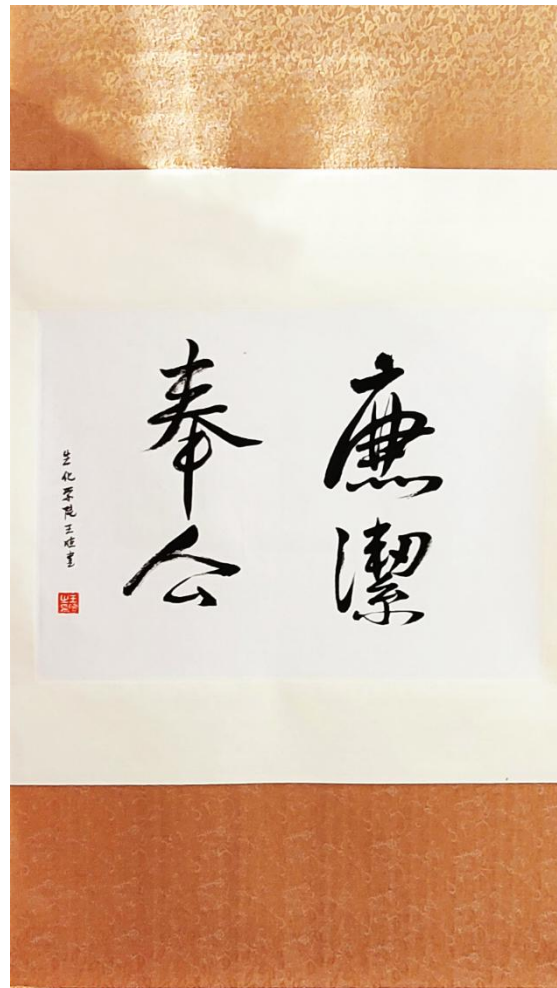 廉潔
奉公
生化学院王恒書